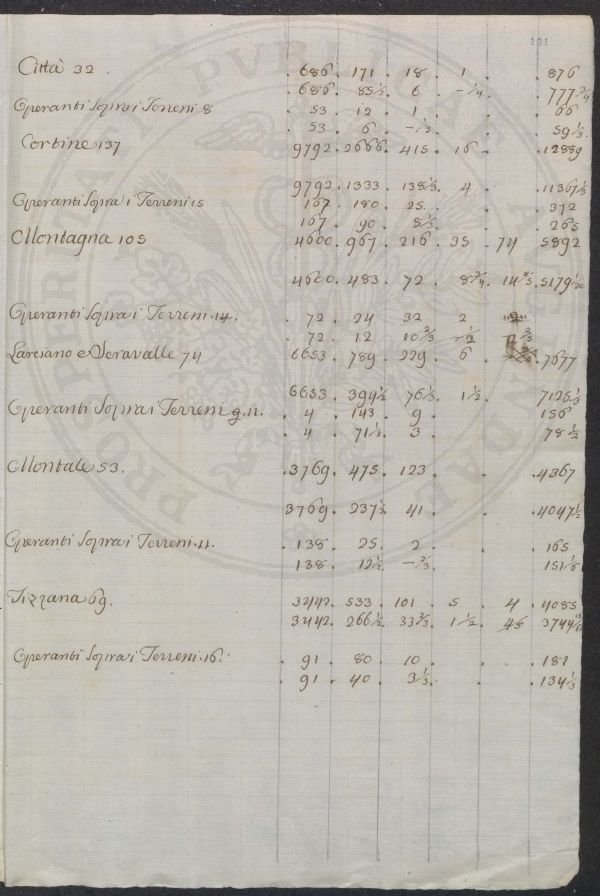 131
Città 32 . 686 . 171 . 18 . 1 . . 876
. 686 . 85½ 6 . -¼ . . 777¾
Operanti Sopra i Terreni 8 . 53 . 12 . 1 . . . 66
. 53 . 6 . -⅓ . . . 59⅓
Cortine 137 9792 . 2666 . 415 . 16 . . 12889
9792 . 1333 . 138⅓ . 4 . . 11367⅓
Operanti Sopra i Terreni 15 . 167 . 180 . 25 . . . 372
167 . 90 . 8⅓ . . . 265
Montagna 105 4600 . 967 . 216 . 35 . 74 5892
4600 . 483 . 72 . 8¾ . 14⅘ . 5179 1/20
Operanti Sopra i Terreni . 14 . . 72 . 24 32 2
. 72 . 12 10⅔ . -½
Larciano e Seravalle 74 6653 . 789 . 229 . 6 . . 7677
6653 . 394½ 76⅓ . 1½ . . 7125⅓
Operanti Sopra i Terreni 9 . 11 . . 4 . 143 . 9 . . . 156
. 4 . 71½ . 3 . . . 78½
Montale 53 . . 3769 . 475 . 123 . . . 4367
3769 . 237½ 41 . . . 4047½
Operanti Sopra i Terreni . 11 . . 138 . 25 . 2 . . . 165
138 . 12½ -⅔ . . 151⅙
Tizzana 69 . 3442 . 533 . 101 . 5 . 4 . 4085
3442 . 266½ 33⅔ . 1½ . ⅘ . 3744
Operanti Sopra i Terreni . 16 . . 91 . 80 . 10 . . . 181
. 91 . 40 . 3⅓ . . . 134⅓
PROSPERITAS PVBLICAE